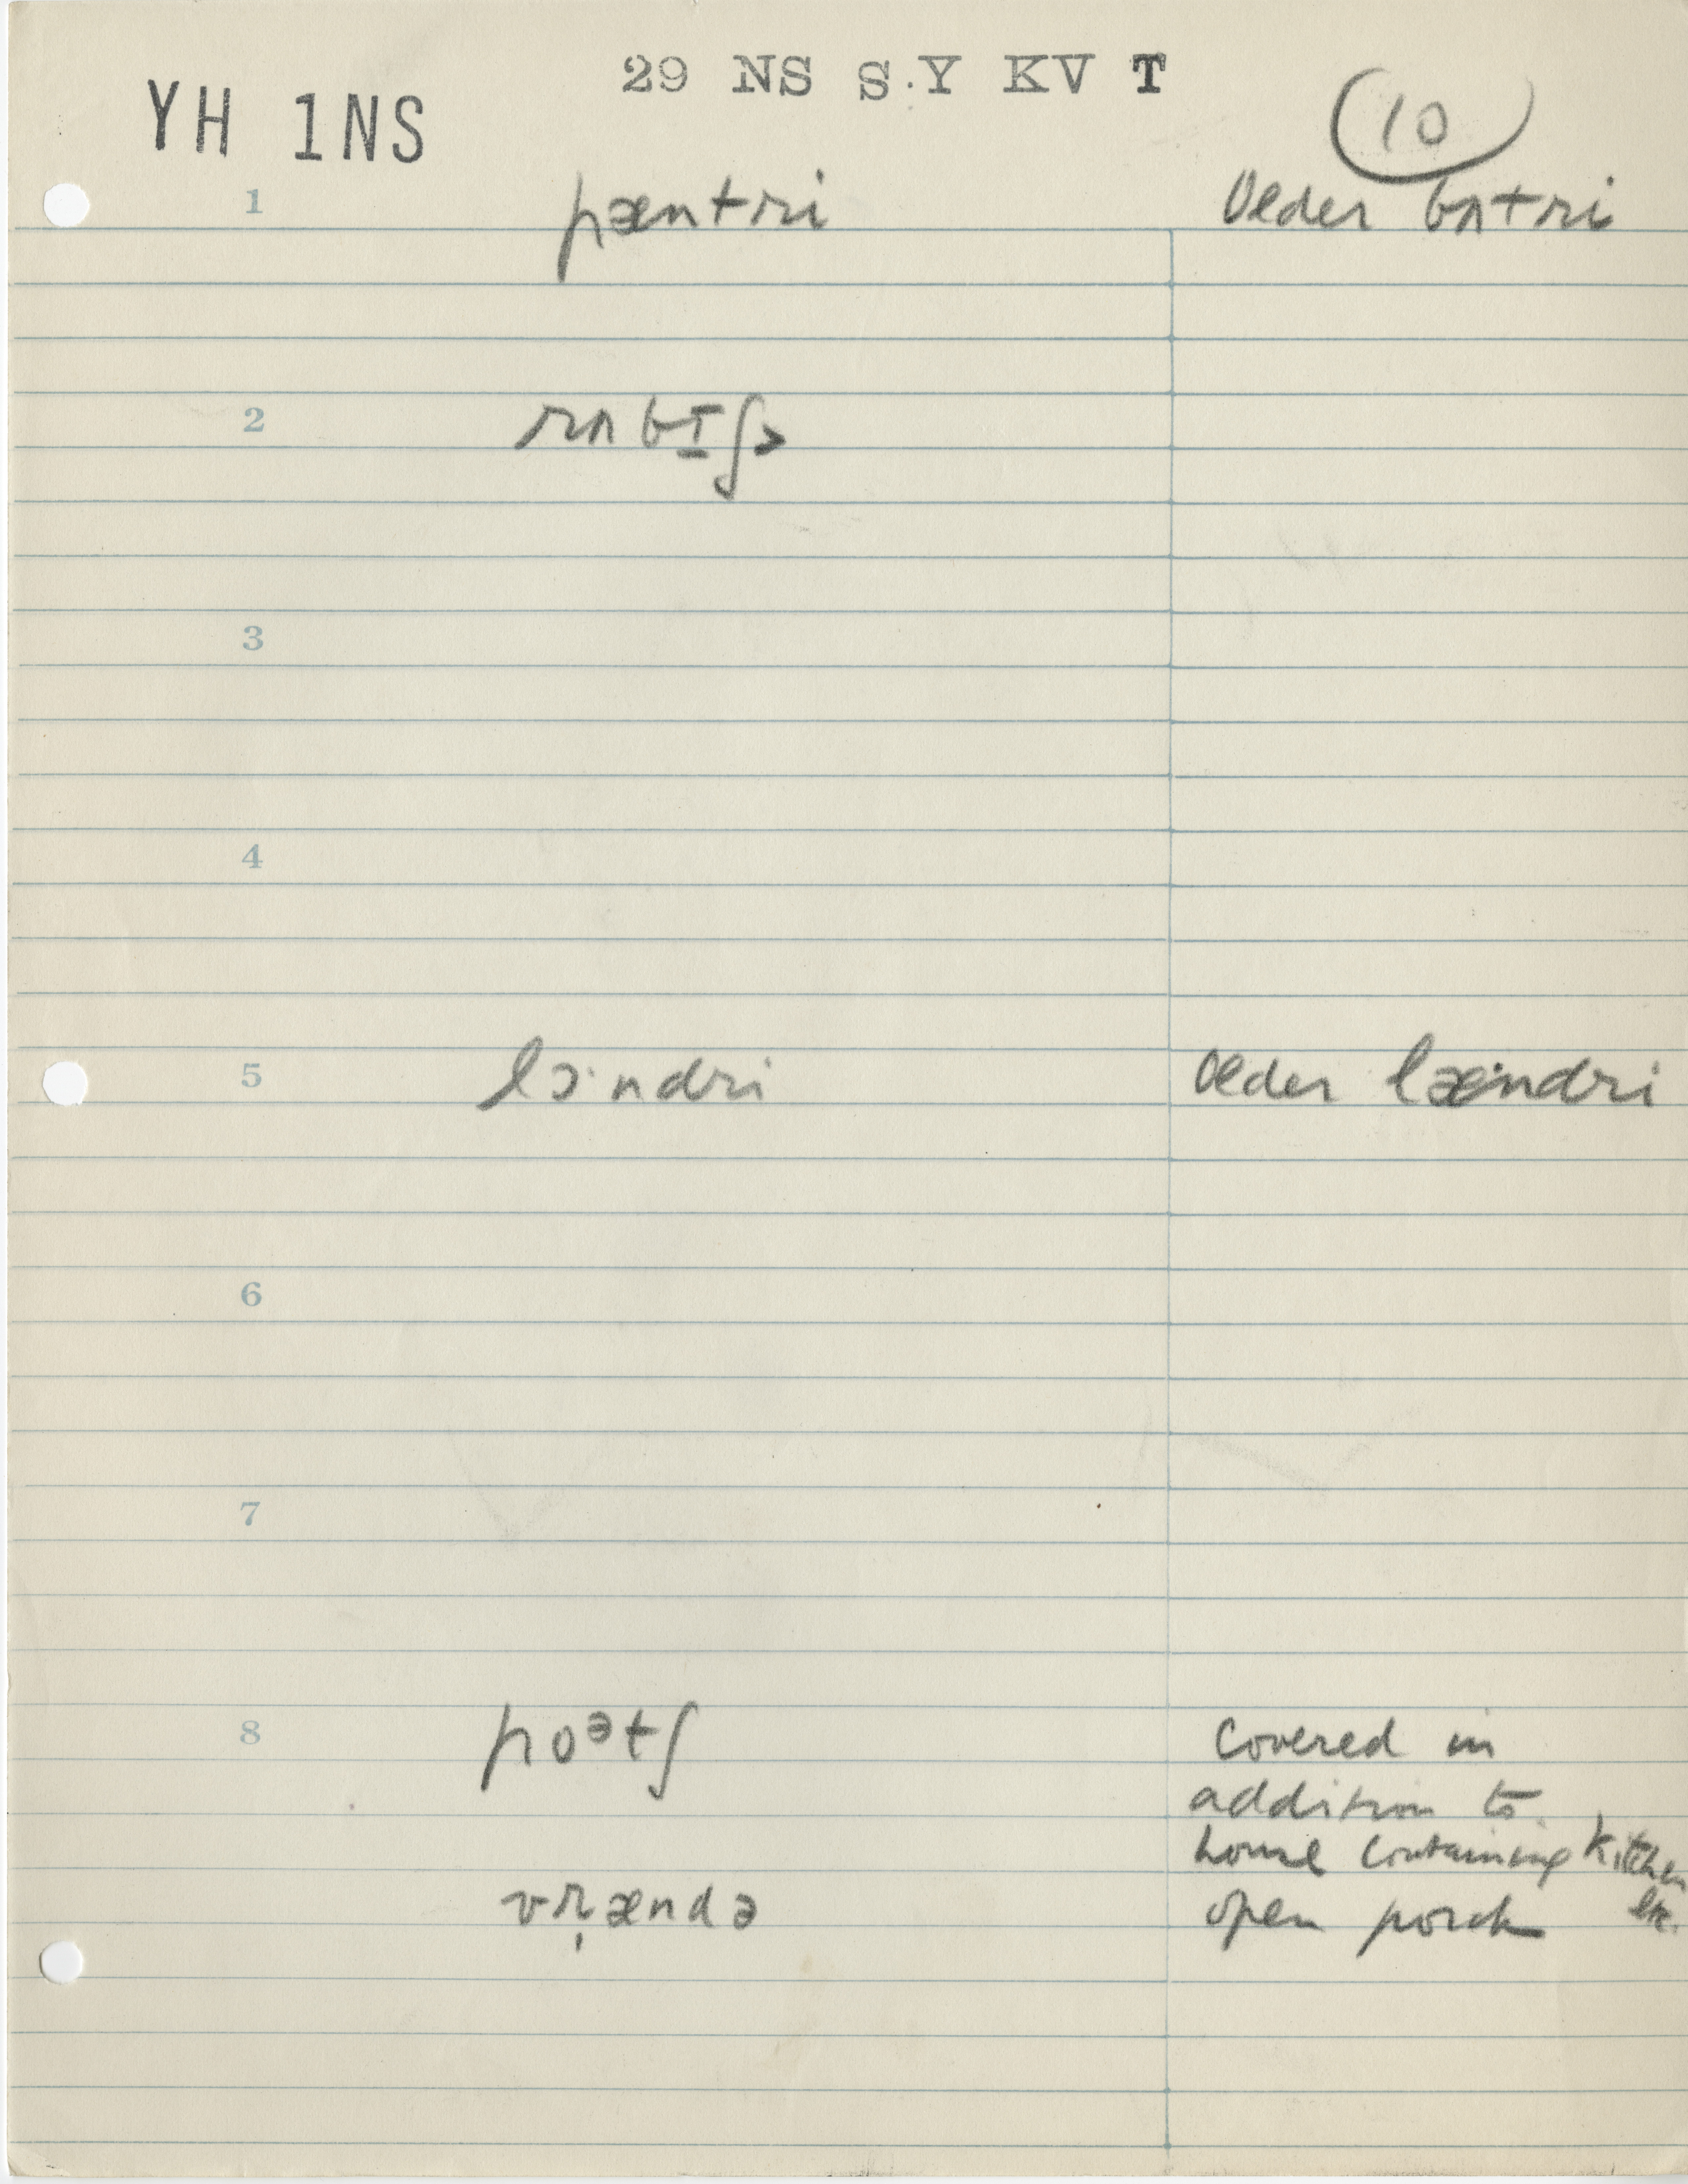 29 NS S.Y KV T
YH 1NS
10
1 pæntri Older bʌtri
2 rʌbɪ̠ʃ>
3
4
5 lɔ·ndri Older læ·ndri
6
7
8 poᵊtʃ Covered in
addition to
house containing kitchen
etc.
vr̩ændə open porch